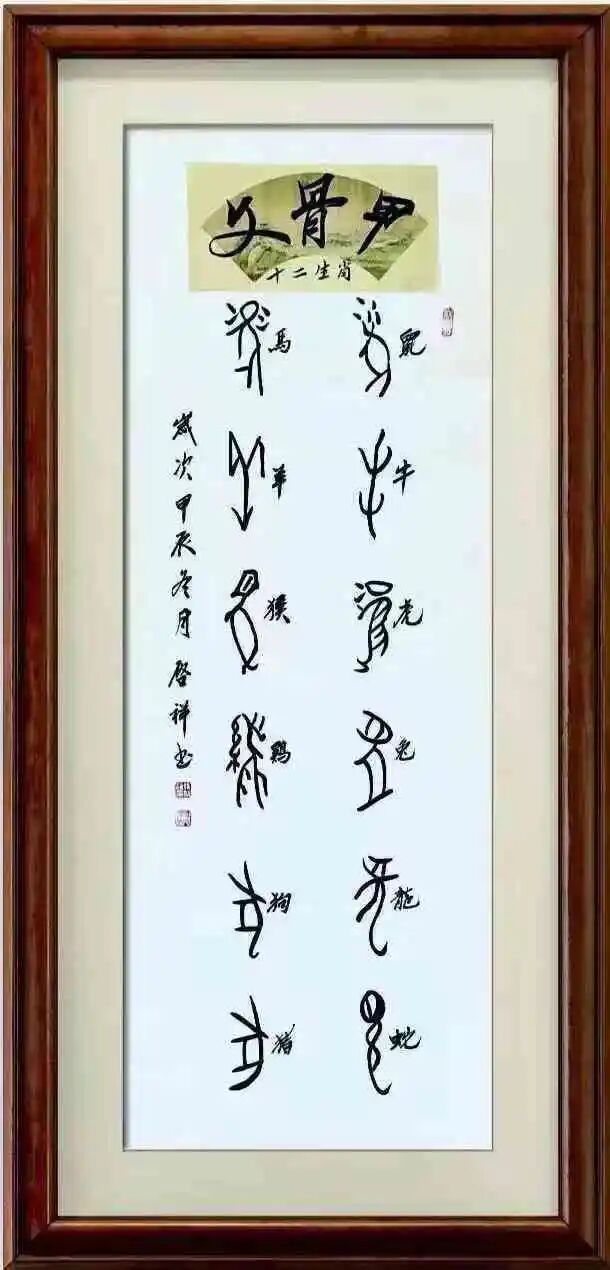 甲骨文
十二生肖
鼠
牛
虎
兔
龍
蛇
馬
羊
猴
鷄
狗
猪
歲次甲辰冬月 啓祥书